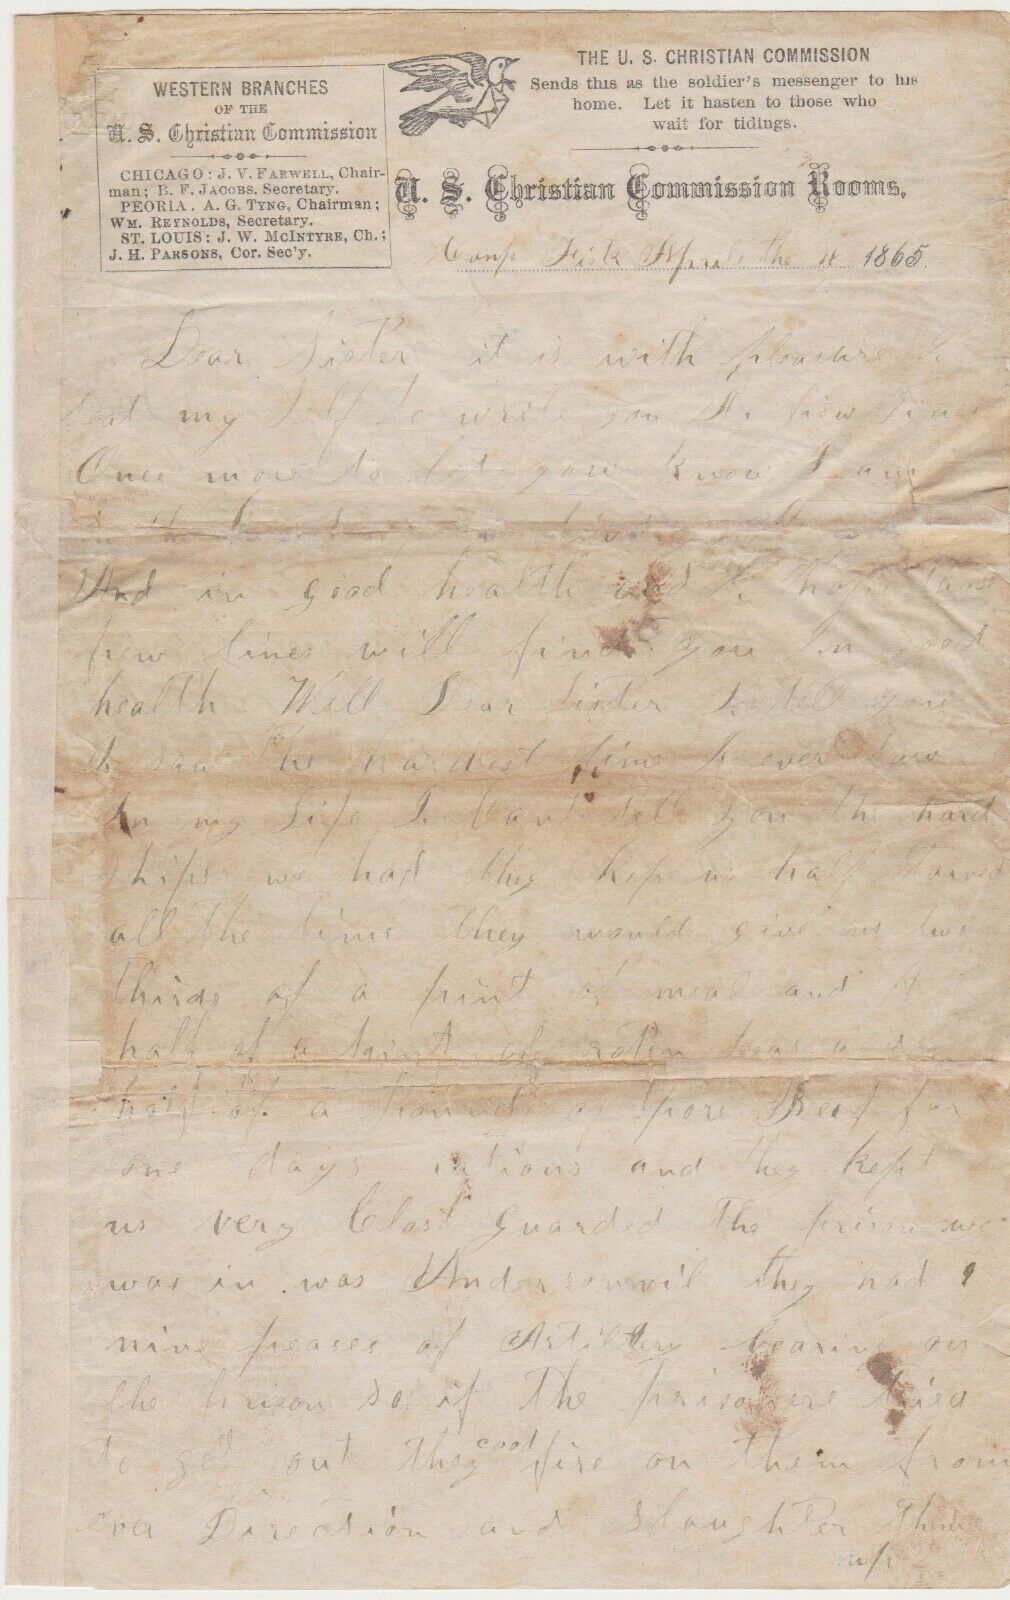 WESTERN BRANCHES
OF THE
U. S. Christian Commission
CHICAGO: J. V. FARWELL, Chair-
man; B. F. JACOBS, Secretary.
PEORIA. A. G. TYNG, Chairman;
WM. REYNOLDS, Secretary.
ST. LOUIS: J. W. MCINTYRE, Ch.;
J. H. PARSONS, Cor. Sec'y.
THE U. S. CHRISTIAN COMMISSION
Sends this as the soldier's messenger to his
home. Let it hasten to those who
wait for tidings.
U. S. Christian Commission Rooms,
Camp Fisk April the 4 1865.
Dear Sister it is with pleasure I
seat my self to write you A few lines
Once more to let you know I am
in the land
And in good health and I hope thes
few lines will find you in good
health Well Dear Sister I tell you
I saw the hardest time I ever saw
In my Life I Cant Tell you the hard
ships we had they kep us half starved
all the Time they would give us two
thirds of a pint of meal and A
half of a pint of roten beas a
half of a pound of pore Beef for
one days rations and they kept
us very Clost guarded The prison we
was in was Andersonvil they had 9
nine peases of Artillery bearing on
the prison so if The prisoners tried
to get out they cood fire on them from
ever Direction and slaughter them
up